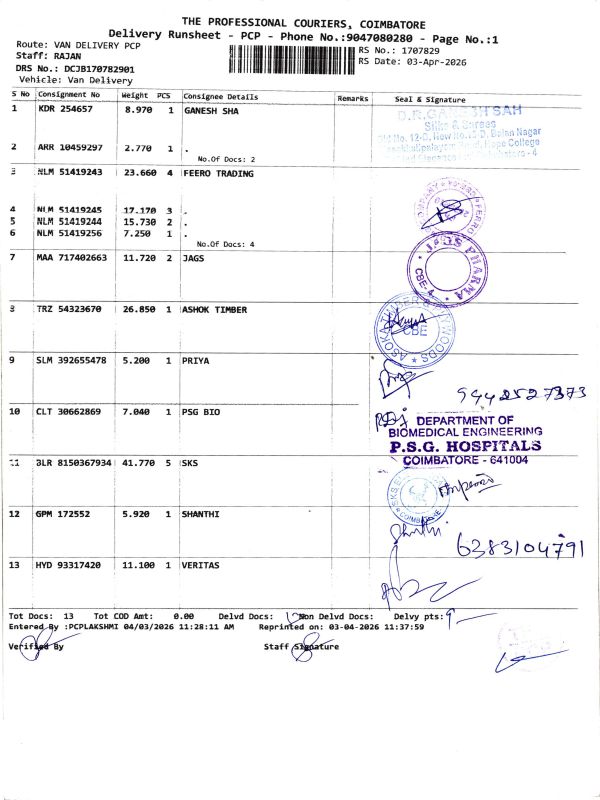 THE PROFESSIONAL COURIERS, COIMBATORE
Delivery Runsheet - PCP - Phone No.:9047080280 - Page No.:1
Route: VAN DELIVERY PCP
Staff: RAJAN
DRS No.: DCJB170782901
Vehicle: Van Delivery
RS No.: 1707829
RS Date: 03-Apr-2026
S No Consignment No Weight PCS Consignee Details Remarks Seal & Signature
1 KDR 254657 8.970 1 GANESH SHA
D.R.GANESH SAH
Silks & Sarees
2 ARR 10459297 2.770 1 .
No.Of Docs: 2
3 NLM 51419243 23.660 4 FEERO TRADING
4 NLM 51419245 17.170 3 .
5 NLM 51419244 15.730 2 .
6 NLM 51419256 7.250 1 .
No.Of Docs: 4
7 MAA 717402663 11.720 2 JAGS
JAGS PHARMA
CBE-4
8 TRZ 54323670 26.850 1 ASHOK TIMBER
CBE
9 SLM 392655478 5.200 1 PRIYA
9442527373
10 CLT 30662869 7.040 1 PSG BIO
DEPARTMENT OF
BIOMEDICAL ENGINEERING
P.S.G. HOSPITALS
COIMBATORE - 641004
11 BLR 8150367934 41.770 5 SKS
12 GPM 172552 5.920 1 SHANTHI
6383104791
13 HYD 93317420 11.100 1 VERITAS
Tot Docs: 13 Tot COD Amt: 0.00 Delvd Docs: Non Delvd Docs: Delvy pts: 9
Entered By :PCPLAKSHMI 04/03/2026 11:28:11 AM Reprinted on: 03-04-2026 11:37:59
Verified By Staff Signature